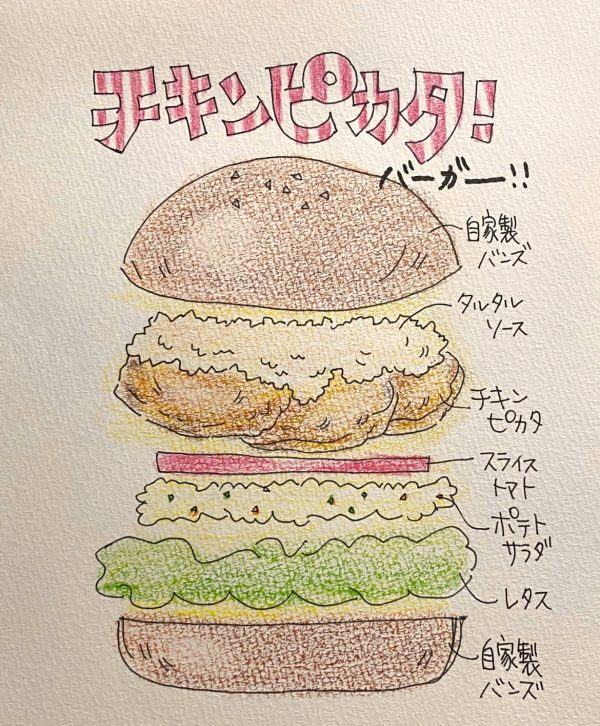 チキンピカタ!
バーガー!!
自家製
バンズ
タルタル
ソース
チキン
ピカタ
スライス
トマト
ポテト
サラダ
レタス
自家製
バンズ